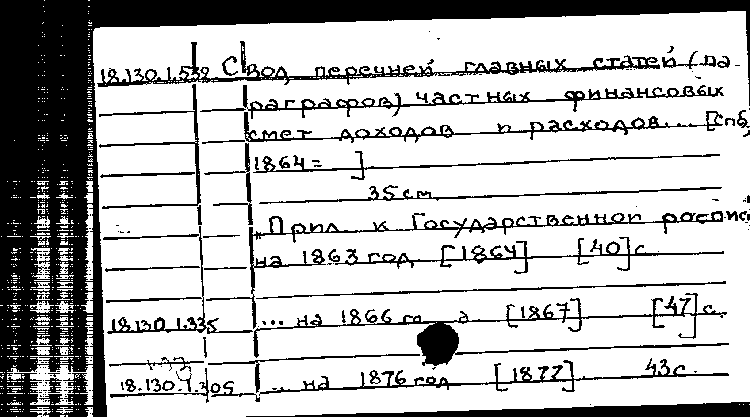 18.130.1.539 Свод перечней главных статей (па
раграфов) частных финансовых
смет доходов и расходов... [Спб,
1864= ].
35 см.
„Прил. к Государственной роспис
на 1863 год. [1864] [40] с
18.130.1.335 ... на 1866 го а. [1867] [47] с.
18.130.1.305 ... на 1876 год [1877]. 43 с.